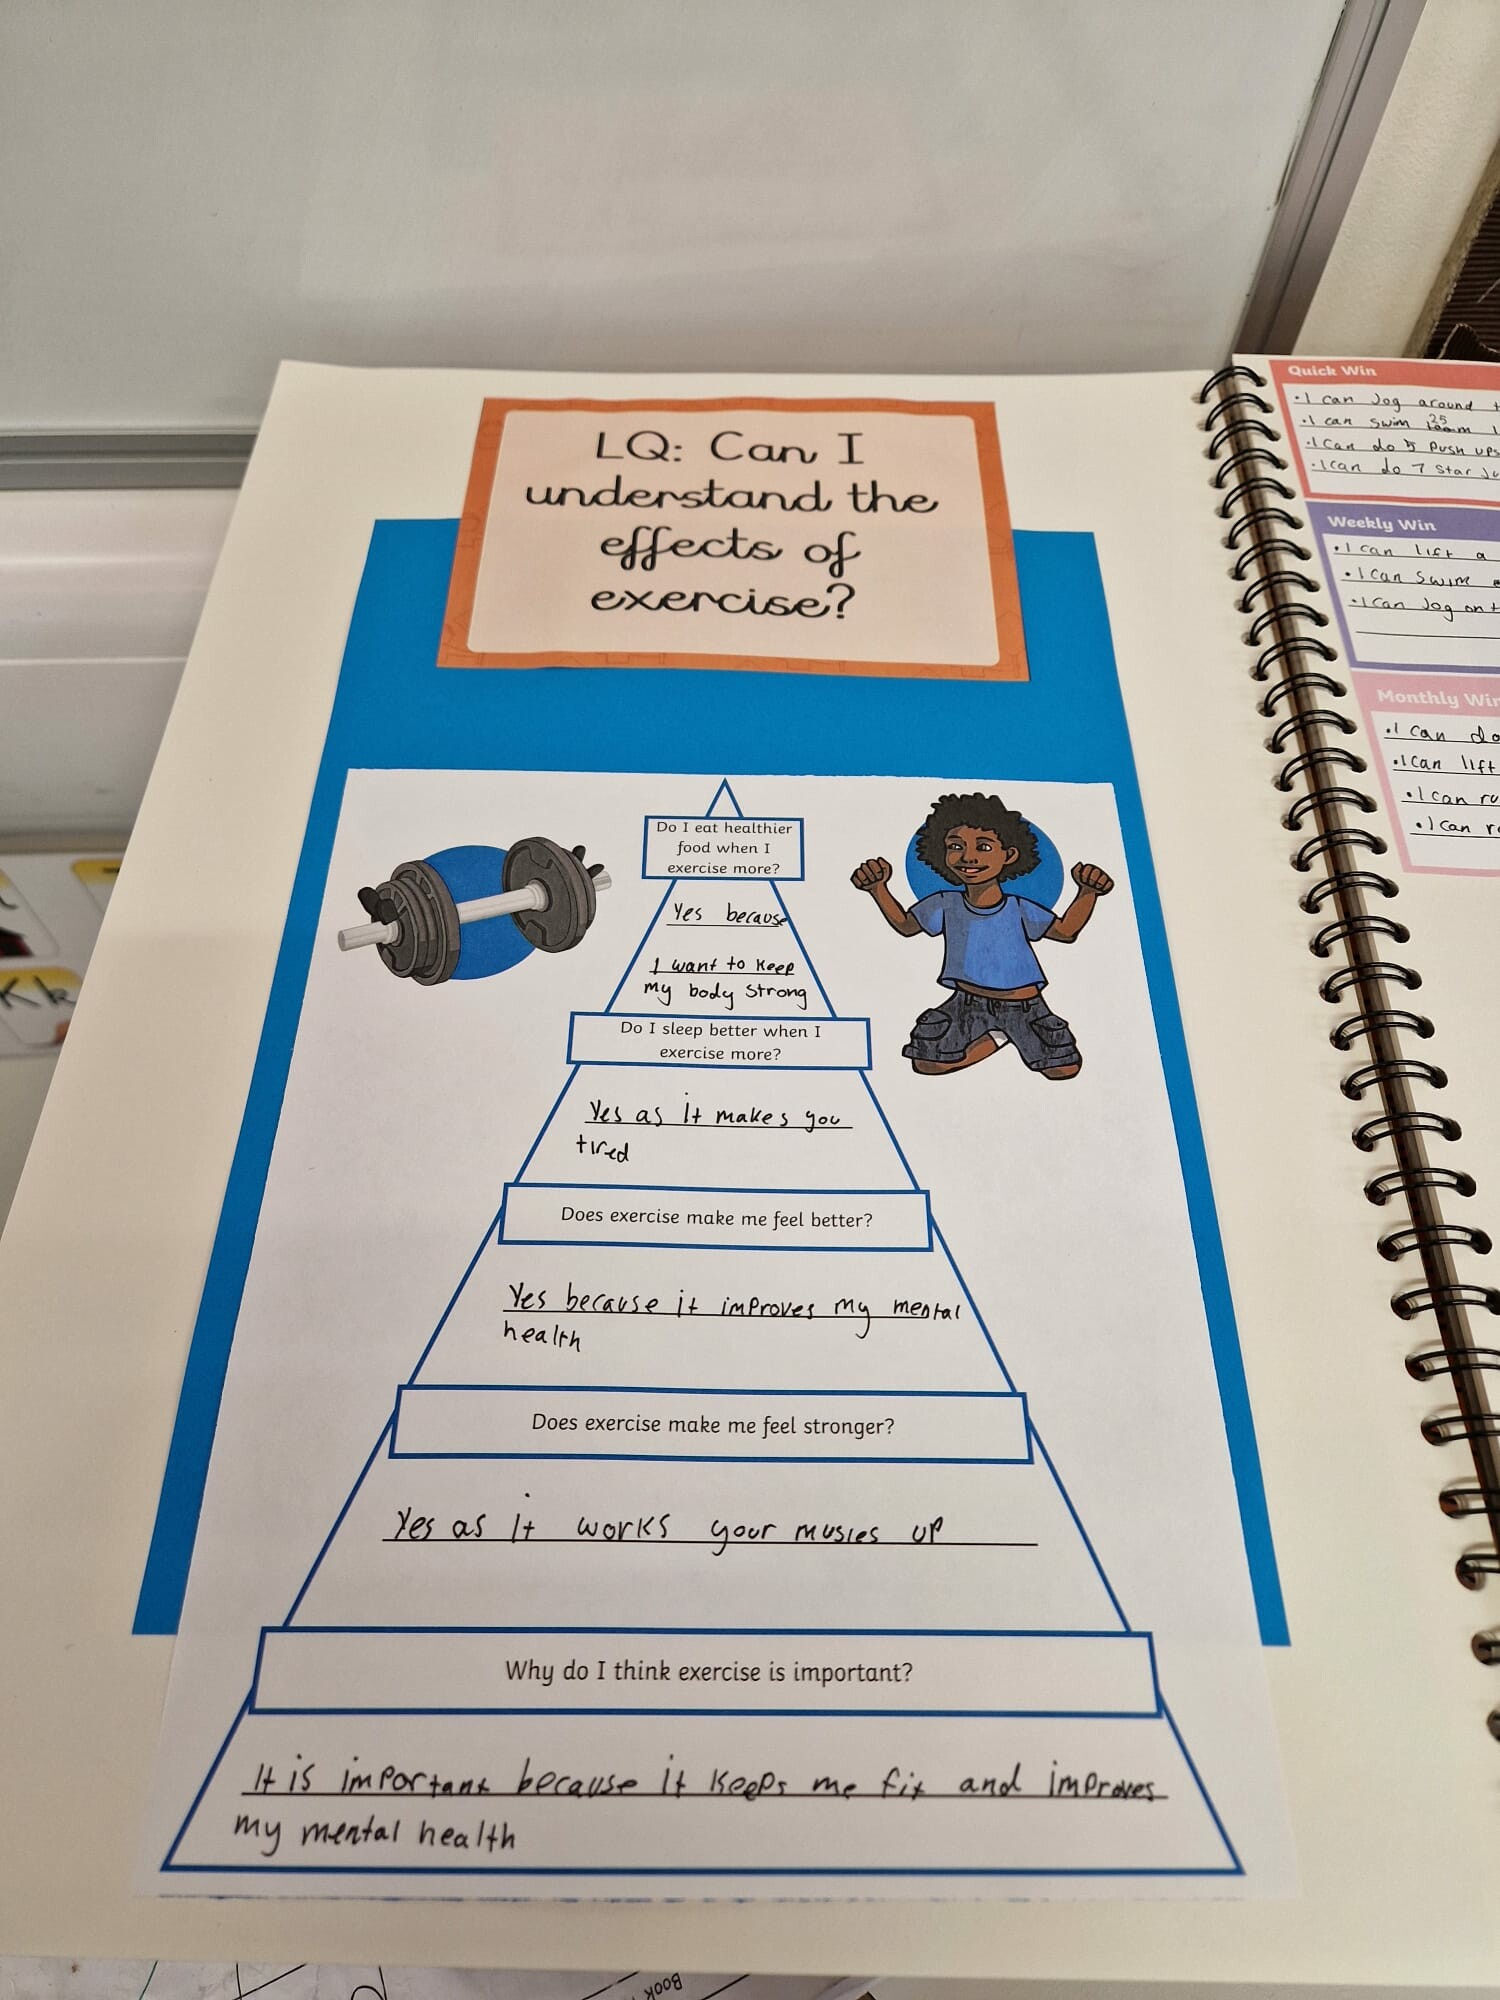 LQ: Can I
understand the
effects of
exercise?
Do I eat healthier
food when I
exercise more?
Yes because
I want to keep
my body strong
Do I sleep better when I
exercise more?
Yes as it makes you
tired
Does exercise make me feel better?
Yes because it improves my mental
health
Does exercise make me feel stronger?
Yes as it works your musles up
Why do I think exercise is important?
It is important because it keeps me fit and improves
my mental health
Quick Win
• I can Jog around
• I can swim 25m
• I can do 5 Push ups
• I can do 7 Star
Weekly Win
• I can lift a
• I can swim
• I can Jog on
Monthly
• I can do
• I can lift
• I can
• I can
Kk
Book